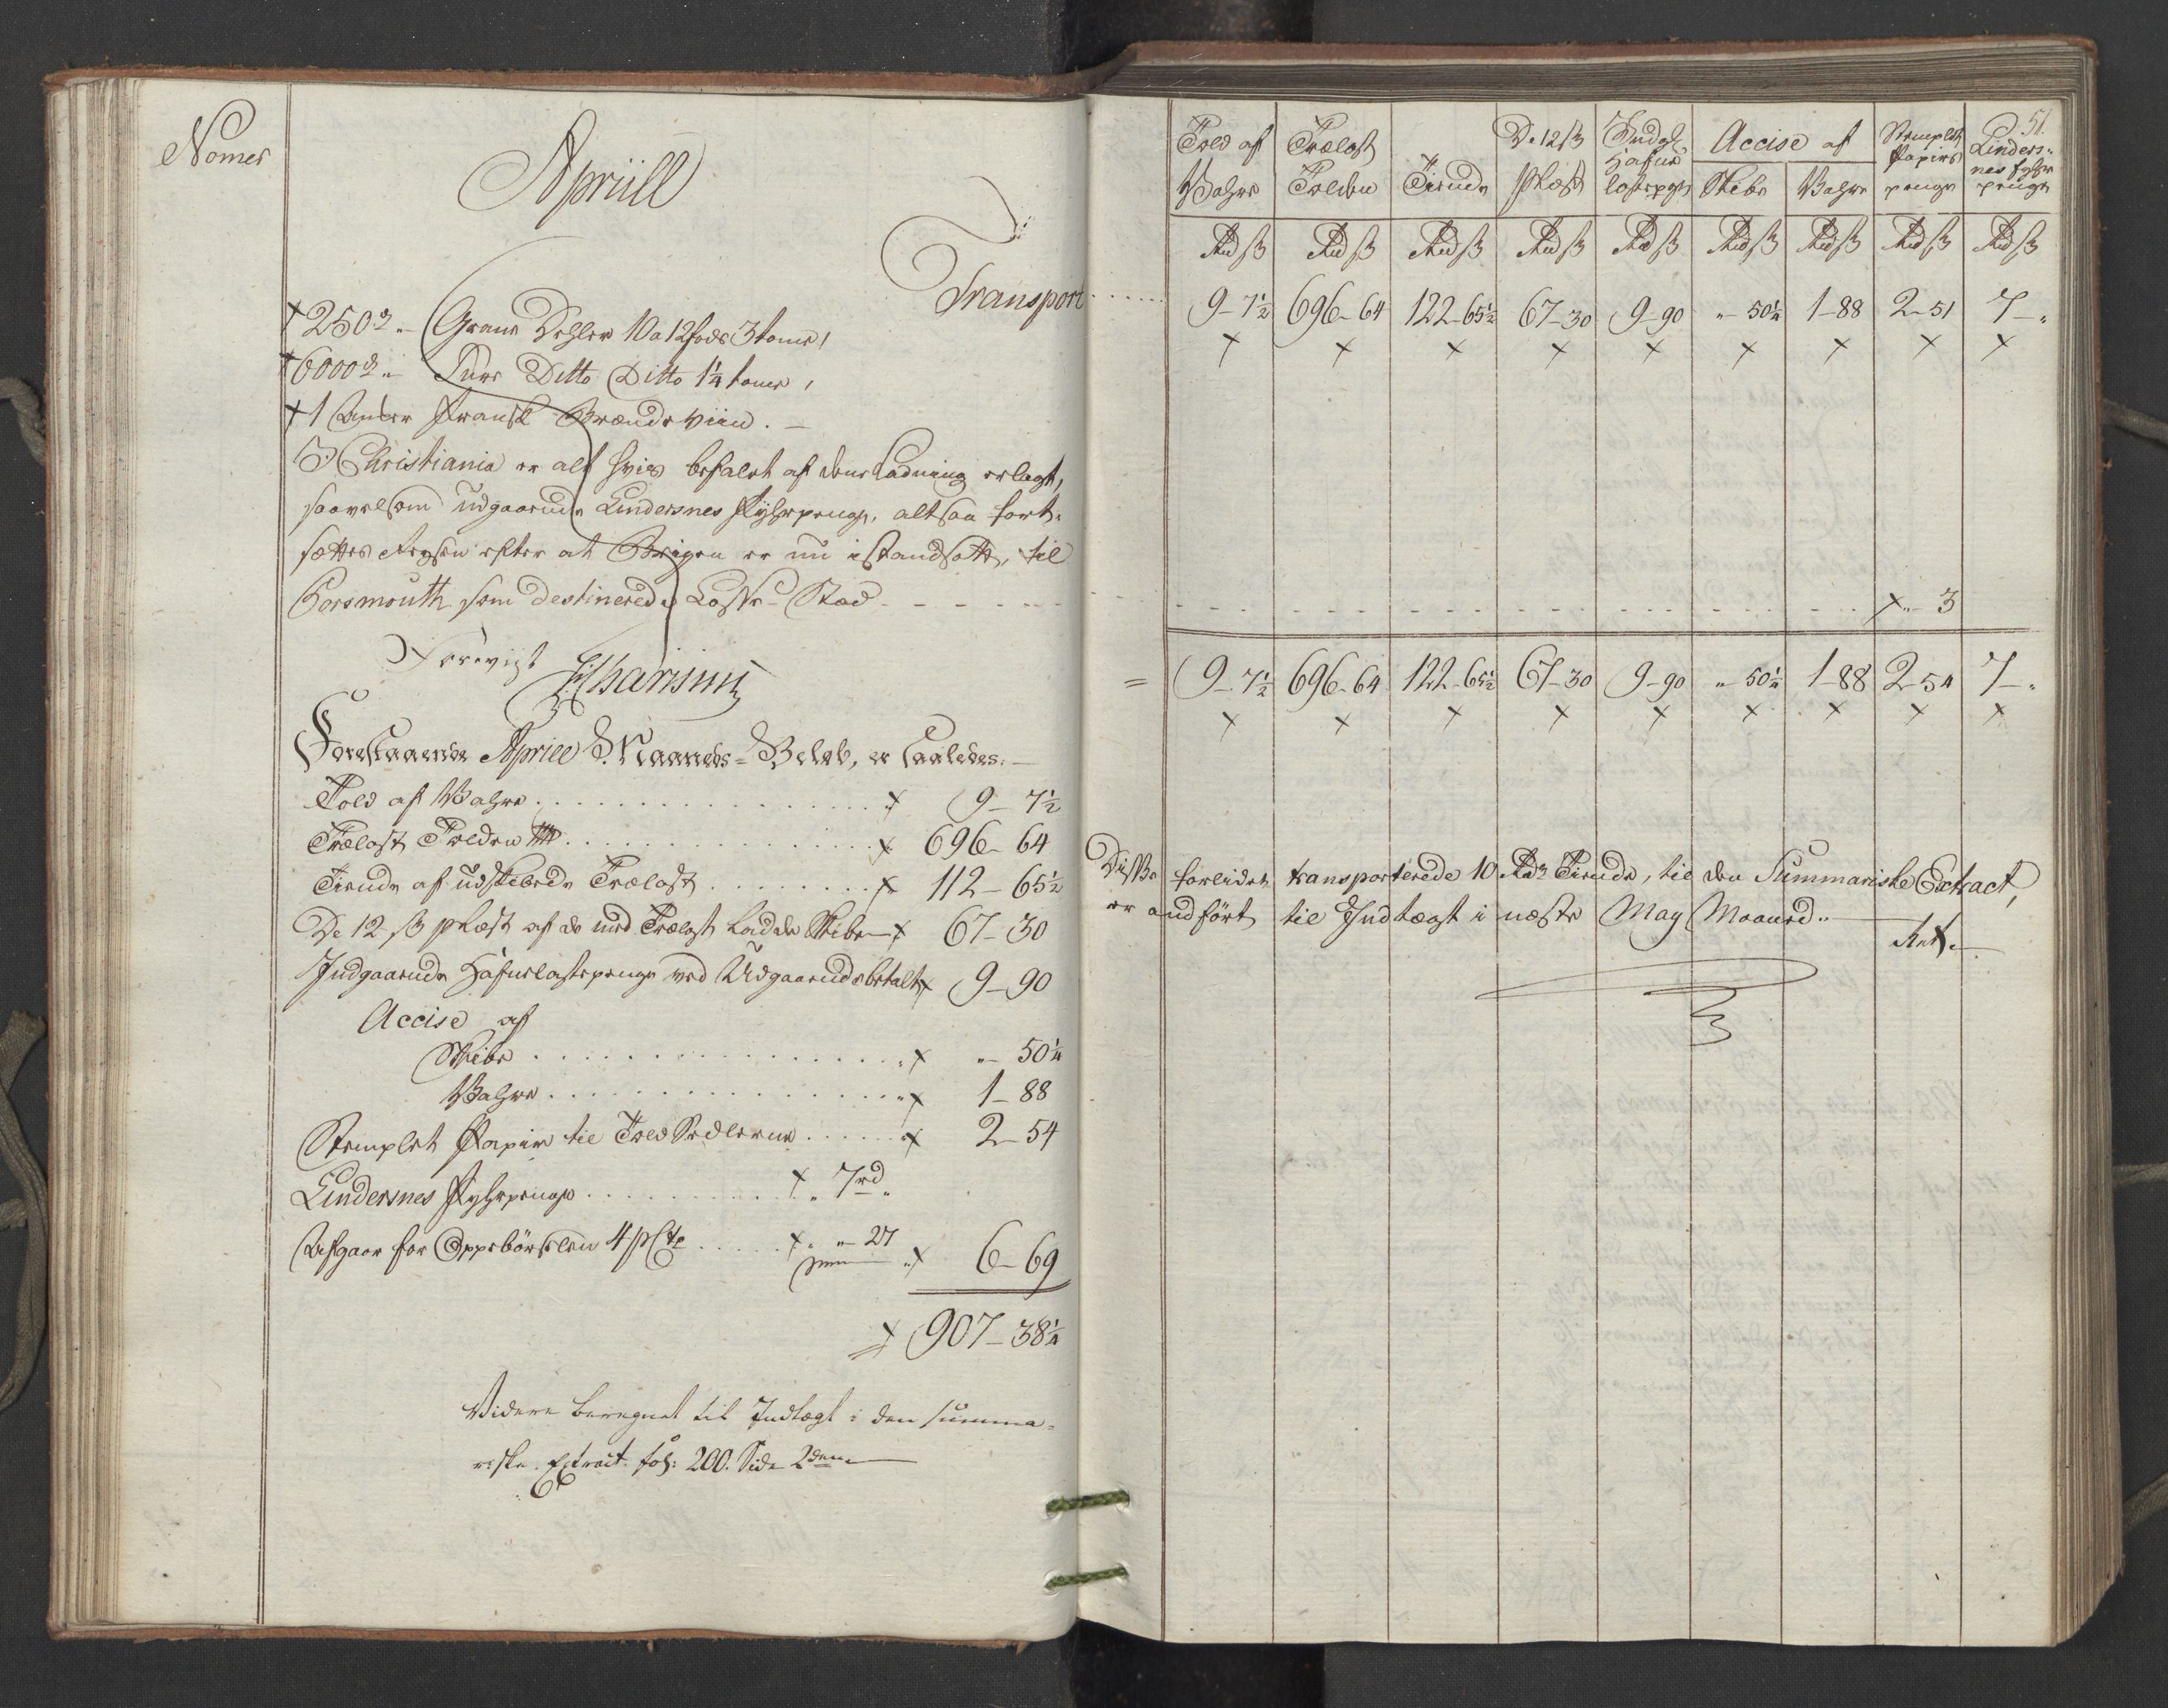 Nomer
Aprill
Transport
250 Grane Dehler 10 a 12 fods 3 tome,
6000 Furu Ditto Ditto 1¼ tome,
1 Anker fransk Brændeviin.
I Christiania er alt hvis befalet af denne Ladning erlagt,
saavelsom udgaaende Lindersnes Fyhrpenge, altsaa fort-
sættes Reysen efter at Brigen er nu istandsatt, til
Porsmouth som destinerede Losse-Stæd
Forevigt
Forestaaende Aprill Maaneds-Beløb, er saaledes:
Told af Wahre 9-7½
Trælast Tolden 696-64
Tiende af udskibede Trælast 112-65½
De 12 ß pLæst af de med Trælast Ladde Skibe 67-30
Indgaaende Hafnelastepenge ved Udgaaende betalt 9-90
Accise af
Skibe „-50¼
Wahre 1-88
Stemplet Papir til Told Sedlerne 2-54
Lindersnes Fyhrpenge 7rd „
Afgaar for Oppebørselen 4 pCto „-27
6-69
907-38¼
Videre beregnet til Indtægt i den summa-
riske Extract fol: 200. Side 2den
51.
Told af Wahre
Trælast Tolden
Tiende
De 12 ß pLæst
Indg: Hafne lastepge
Accise af
Skibe
Wahre
Stemplet Papirs penge
Linders-nes fyhr penge
Rd ß Rd ß Rd ß Rd ß Rd ß Rd ß Rd ß Rd ß Rd ß
9-7½ 696-64 122-65½ 67-30 9-90 „-50¼ 1-88 2-51 7-„
„-3
= 9-7½ 696-64 122-65½ 67-30 9-90 „-50¼ 1-88 2-54 7-„
Disse forleden transporterede 10 Rdr Tiende, til den Summariske Extract,
er andført til Indtægt i næste May Maaned.